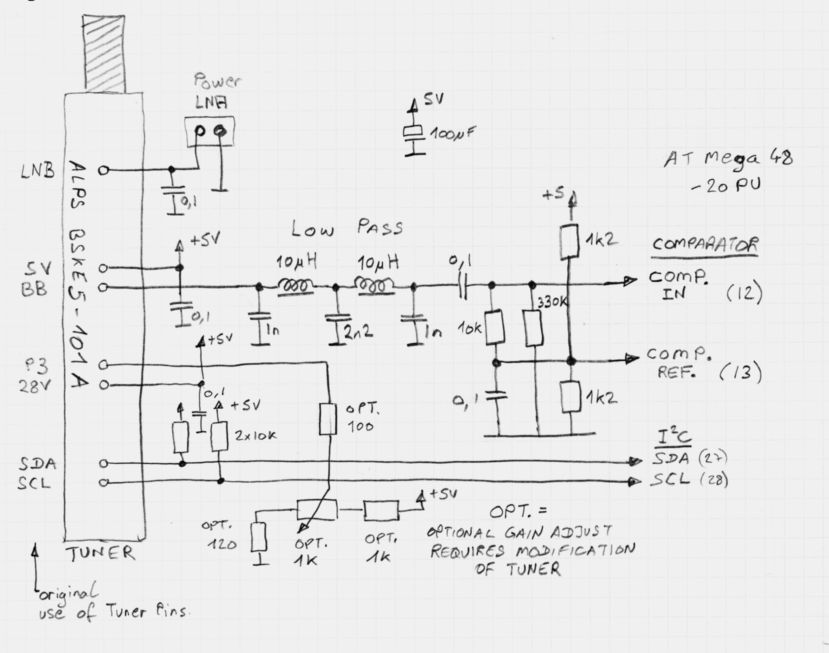 Power
LNB
5V
100µF
AT Mega 48
-20 PU
LNB
0,1
ALPS BSKE5-101A
+5
1k2
LOW PASS
+5V
10µH
10µH
0,1
COMPARATOR
5V
BB
COMP.
IN (12)
0,1
1n
2n2
1n
10k
330k
+5V
P3
28V
COMP.
REF. (13)
0,1
+5V
2x10k
OPT.
100
0,1
1k2
I²C
SDA
SDA (27)
SCL
SCL (28)
+5V
OPT.
120
OPT.
1K
OPT.
1K
OPT. =
OPTIONAL GAIN ADJUST
REQUIRES MODIFICATION
OF TUNER
TUNER
original
use of Tuner Pins.